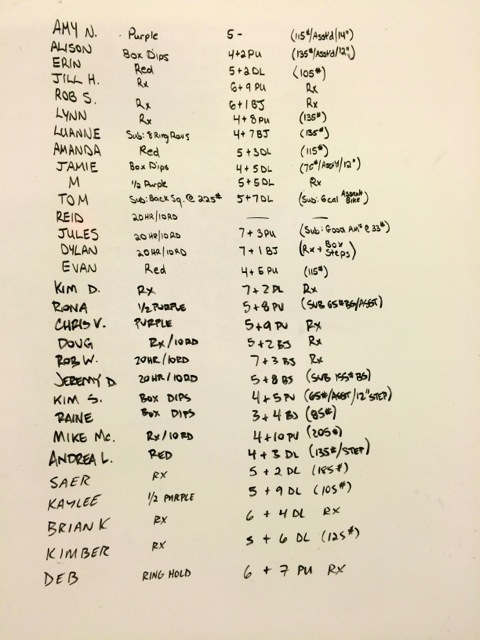 AMY N. Purple 5 - (115#/Asst'd/14")
ALISON Box Dips 4+2PU (135#/Asst'd/12")
ERIN Red 5+2DL (105#)
JILL H. Rx 6+9 PU Rx
ROB S. Rx 6+1 BJ Rx
LYNN Rx 4+8 PU (135#)
LUANNE Sub: 8 Ring Rows 4+7 BJ (135#)
AMANDA Red 5+3DL (115#)
JAMIE Box Dips 4+5DL (75#/Asst'd/12")
M 1/2 Purple 5+5DL Rx
TOM Sub: Back Sq. @ 225# 5+7DL (Sub: 6 cal Bike)
REID 20HR/10RD — —
JULES 20HR/10RD 7+3PU (Sub: Good Am's @ 33#)
DYLAN 20HR/10RD 7+1 BJ (Rx + Box Steps)
EVAN Red 4+6 PU (115#)
KIM D. Rx 7+2 DL Rx
RONA 1/2 PURPLE 5+8 PU (SUB 65# BS/ASST)
CHRIS V. PURPLE 5+9 PU Rx
DOUG Rx/10RD 5+2 BJ Rx
ROB W. 20HR/10RD 7+3 BJ Rx
JEREMY D 20HR/10RD 5+8 BJ (SUB 155# BS)
KIM S. BOX DIPS 4+5 PU (65#/ASST/12" STEP)
RAINE BOX DIPS 3+4 BJ (85#)
MIKE MC. Rx/10RD 4+10 PU (205#)
ANDREA L. RED 4+3 DL (135#/STEP)
SAER RX 5+2 DL (185#)
KAYLEE 1/2 PURPLE 5+9 DL (105#)
BRIAN K RX 6+4 DL RX
KIMBER RX 5+6 DL (125#)
DEB RING HOLD 6+7 PU RX